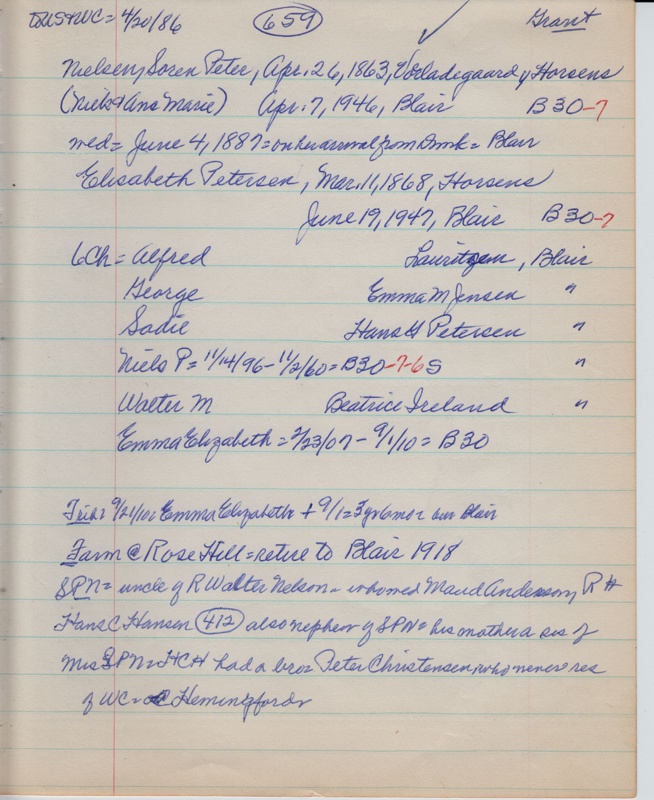 to US & WC = 4/20/86 659 Grant
Nielsen, Soren Peter, Apr. 26, 1863, Horsens
(Niels & Ana Marie) Apr. 7, 1946, Blair B30-7
wed = June 4, 1887 = on her arrival from Dmk = Blair
Elisabeth Petersen, Mar. 11, 1868, Horsens
June 19, 1947, Blair B30-7
6Ch = Alfred Lauritzen, Blair
George Emma M Jensen "
Sadie Hans H Petersen "
Niels P = 11/14/96 - 11/2/60 = B30-7-6S "
Walter M Beatrice Ireland "
Emma Elizabeth = 2/23/07 - 9/1/10 = B30
Trib: 9/21/10: Emma Elizabeth + 9/1 = 3 yr 6 mo = bur Blair
Farm @ Rose Hill = retire to Blair 1918
SPN = uncle of R Walter Nelson = who wed Maud Anderson, RH
Hans C Hansen 412 also nephew of SPN = his mother a sis of
Mrs SPN = HCH had a bro = Peter Christensen, who never res
of WC = Hemingford